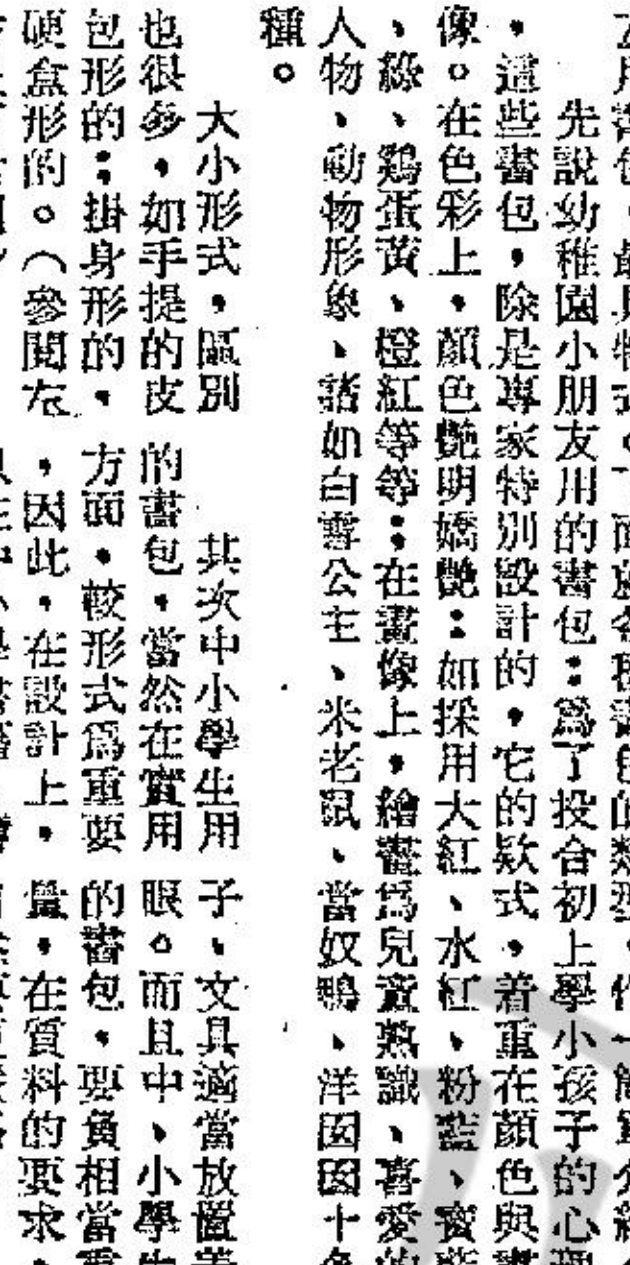 用書包，最具特式。下面就各種書包的類型，作一簡單介紹
先說幼稚園小朋友用的書包：爲了投合初上學小孩子的心理
，這些書包，除是專家特別設計的，它的欵式，着重在顏色與畫
像。在色彩上，顏色艷明嬌艷：如採用大紅、水紅、粉藍、寶藍
、綠、鷄蛋黃、橙紅等等：在畫像上，繪畫爲兒童熟識、喜愛的
人物、動物形象、諸如白雪公主、米老鼠、當奴鴨、洋囡囡十
種。
大小形式，區別
也很多，如手提的皮
包形的：掛身形的，
硬盒形的。（參閱左
其次中小學生用
的書包，當然在實用
方面，較形式爲重要
，因此，在設計上，
子、文具適當放置美
眼。而且中、小學生
的書包，要負相當重
量，在質料的要求，